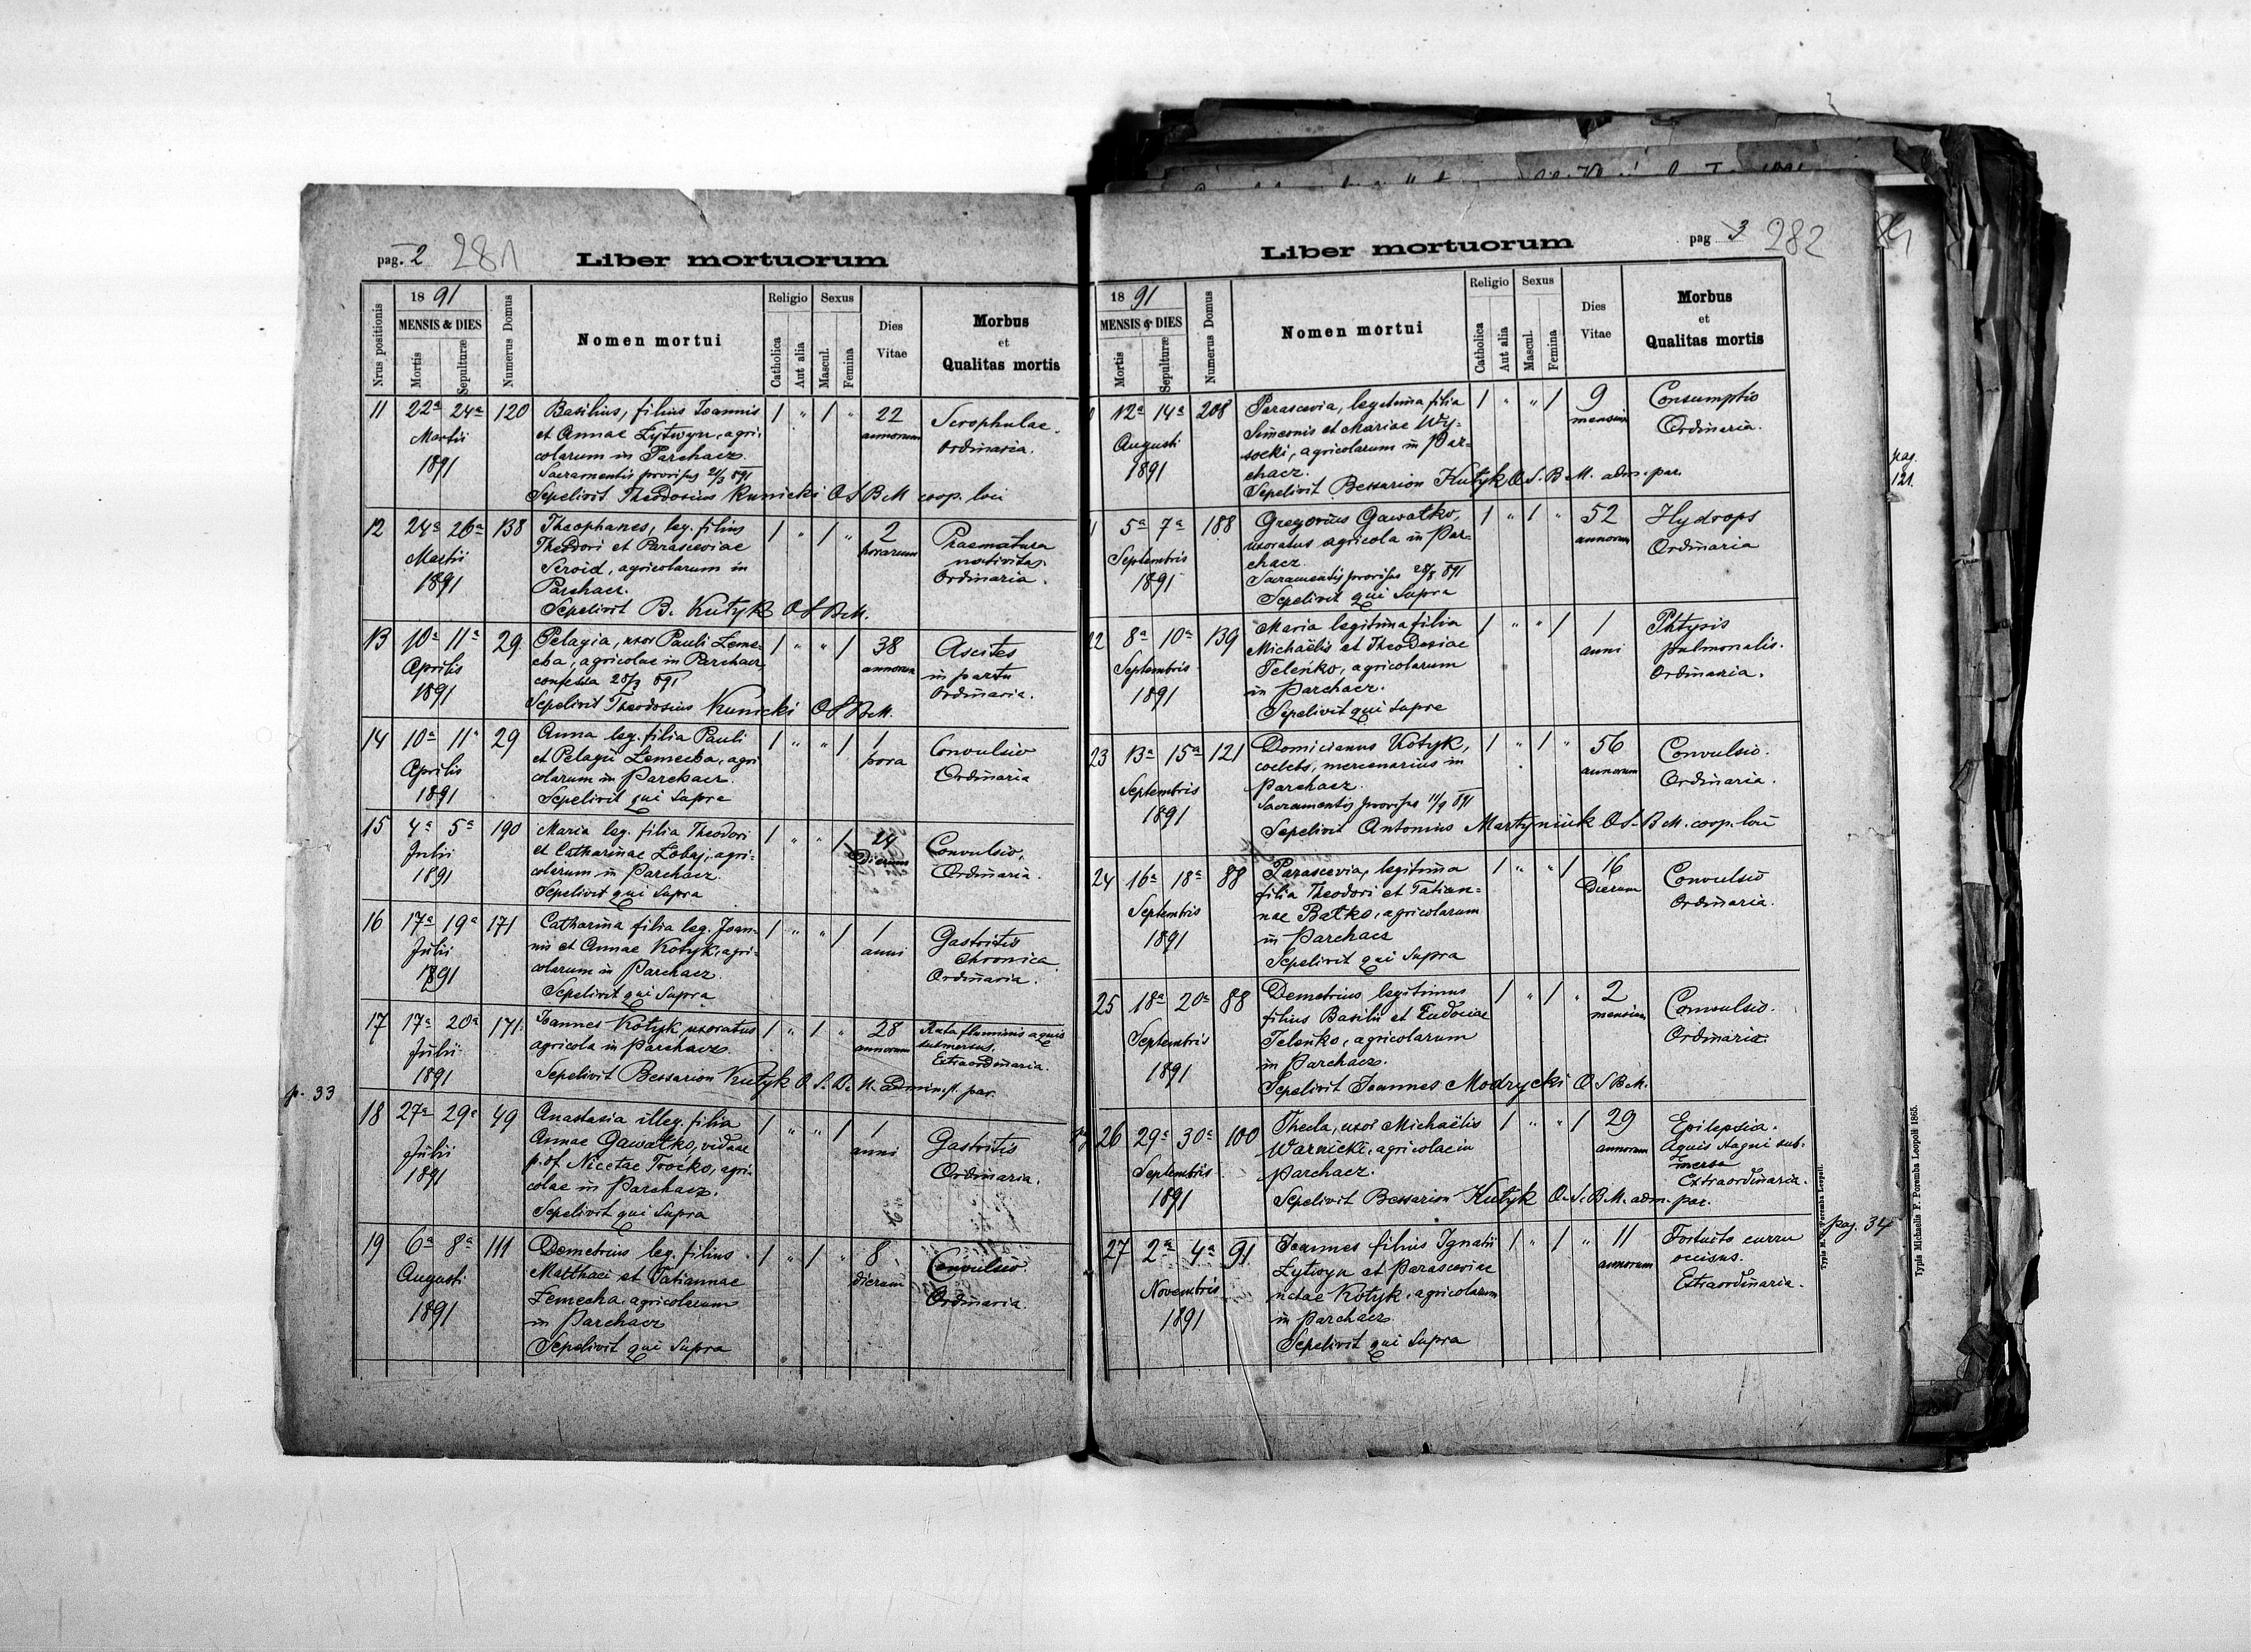 pag. 2 281
Liber mortuorum
Nrus positionis
18 91
MENSIS & DIES
Mortis
Sepulturæ
Numerus Domus
Nomen mortui
Religio
Catholica
Aut alia
Sexus
Mascul.
Femina
Dies
Vitae
Morbus
et
Qualitas mortis
11 22a 24a 120 Basilius, filius Joannis 1 " 1 " 22 Scrophulae.
Martii et Annae Lytwyn, agri: annorum Ordinaria.
1891 colarum in Parchacz.
Sacramentis provisus 21/3 891
Sepelivit Theodosius Kunicki O S B M coop. loci
12 24a 26a 138 Theophanes, leg. filius 1 " 1 " 2 Praematura
Martii Theodori et Parasceviae horarum nativitas.
1891 Seroid, agricolarum in Ordinaria.
Parchacz.
Sepelivit B. Kutyk O S B M.
13 10a 11a 29 Pelagia, uxor Pauli Leme- 1 " " 1 38 Ascites
Aprilis cha, agricolae in Parchacz annorum in partu
1891 confessa 28/3 891 Ordinaria.
Sepelivit Theodosius Kunicki O S B M.
14 10a 11a 29 Anna leg. filia Pauli 1 " " 1 1 Convulsio
Aprilis et Pelagii Lemecha, agri hora Ordinaria
1891 colarum in Parchacz.
Sepelivit qui supra
15 4a 5a 190 Maria leg. filia Theodori 1 " " 1 24 Convulsio.
Julii et Catharinae Lobaj, agri- Dierum Ordinaria.
1891 colarum in Parchacz.
Sepelivit qui supra
16 17a 19a 171 Catharina filia leg. Joan- 1 " " 1 1 Gastritis
Julii nis et Annae Kotyk, agri- anni chronica
1891 colarum in Parchacz. Ordinaria.
Sepelivit qui supra
17 17a 20a 171 Joannes Kotyk uxoratus 1 " 1 " 28 Rata fluminis aquis
Julii agricola in Parchacz. annorum submersus.
1891 Extraordinaria.
Sepelivit Bessarion Kutyk O. S. B. M. Administ. par.
p. 33
18 27a 29a 49 Anastasia illeg. filia 1 " " 1 1 Gastritis
Julii Annae Gawałko, viduae anni Ordinaria.
1891 p. of. Nicetae Trocko, agri-
colae in Parchacz.
Sepelivit qui supra
19 6a 8a 111 Demetrius leg. filius 1 " 1 " 8 Convulsio
Augusti Matthaei et Tatiannae dierum Ordinaria.
1891 Lemecha, agricolarum
in Parchacz
Sepelivit qui supra
pag 3 282
Liber mortuorum
18 91
MENSIS & DIES
Mortis
Sepulturæ
Numerus Domus
Nomen mortui
Religio
Catholica
Aut alia
Sexus
Mascul.
Femina
Dies
Vitae
Morbus
et
Qualitas mortis
12a 14a 208 Parascevia, legitima filia 1 " " 1 9 Consumptio
Augusti Simeonis et Mariae Wy- mensium Ordinaria.
1891 socki, agricolarum in Par-
chacz.
Sepelivit Bessarion Kutyk O. S. B. M. adm. par.
5a 7a 188 Gregorius Gawałko, 1 " 1 " 52 Hydrops
Septembris uxoratus agricola in Par- annorum Ordinaria
1891 chacz.
Sacramentis provisus 28/8 891
Sepelivit qui supra
22 8a 10a 139 Maria legitima filia 1 " " 1 1 Phtysis
Septembris Michaëlis et Theodosiae anni pulmonalis.
1891 Teleńko, agricolarum Ordinaria.
in Parchacz.
Sepelivit qui supra
23 13a 15a 121 Domicianus Kotyk, 1 " 1 " 56 Convulsio.
Septembris coelebs, mercenarius in annorum Ordinaria.
1891 Parchacz.
Sacramentis provisus 11/9 891
Sepelivit Antonius Martyniuk O S. B M. coop. loci
24 16a 18a 88 Parascevia, legitima 1 " " 1 16 Convulsio
Septembris filia Theodori et Tatian- Dierum Ordinaria.
1891 nae Batko, agricolarum
in Parchacz
Sepelivit qui supra
25 18a 20a 88 Demetrius legitimus 1 " 1 " 2 Convulsio.
Septembris filius Basilii et Eudociae mensium Ordinaria.
1891 Teleńko, agricolarum
in Parchacz.
Sepelivit Joannes Modrycki O S B M.
26 29a 30a 100 Thecla, uxor Michaëlis 1 " " 1 29 Epilepsia.
Septembris Warnicki, agricolae in annorum Aquis stagni sub-
1891 Parchacz. mersa
Extraordinaria.
Sepelivit Bessarion Kutyk O. S. B. M. adm. par.
pag. 34
27 2a 4a 91 Joannes filius Ignatii 1 " 1 " 11 Fortuito curru
Novembris Lytwyn et Parasceviae annorum occisus.
1891 natae Kotyk, agricolarum Extraordinaria.
in Parchacz
Sepelivit qui supra
Typis M. F. Poremba Leopoli.
Typis Michaelis F. Poremba Leopoli 1865.
pag.
121.